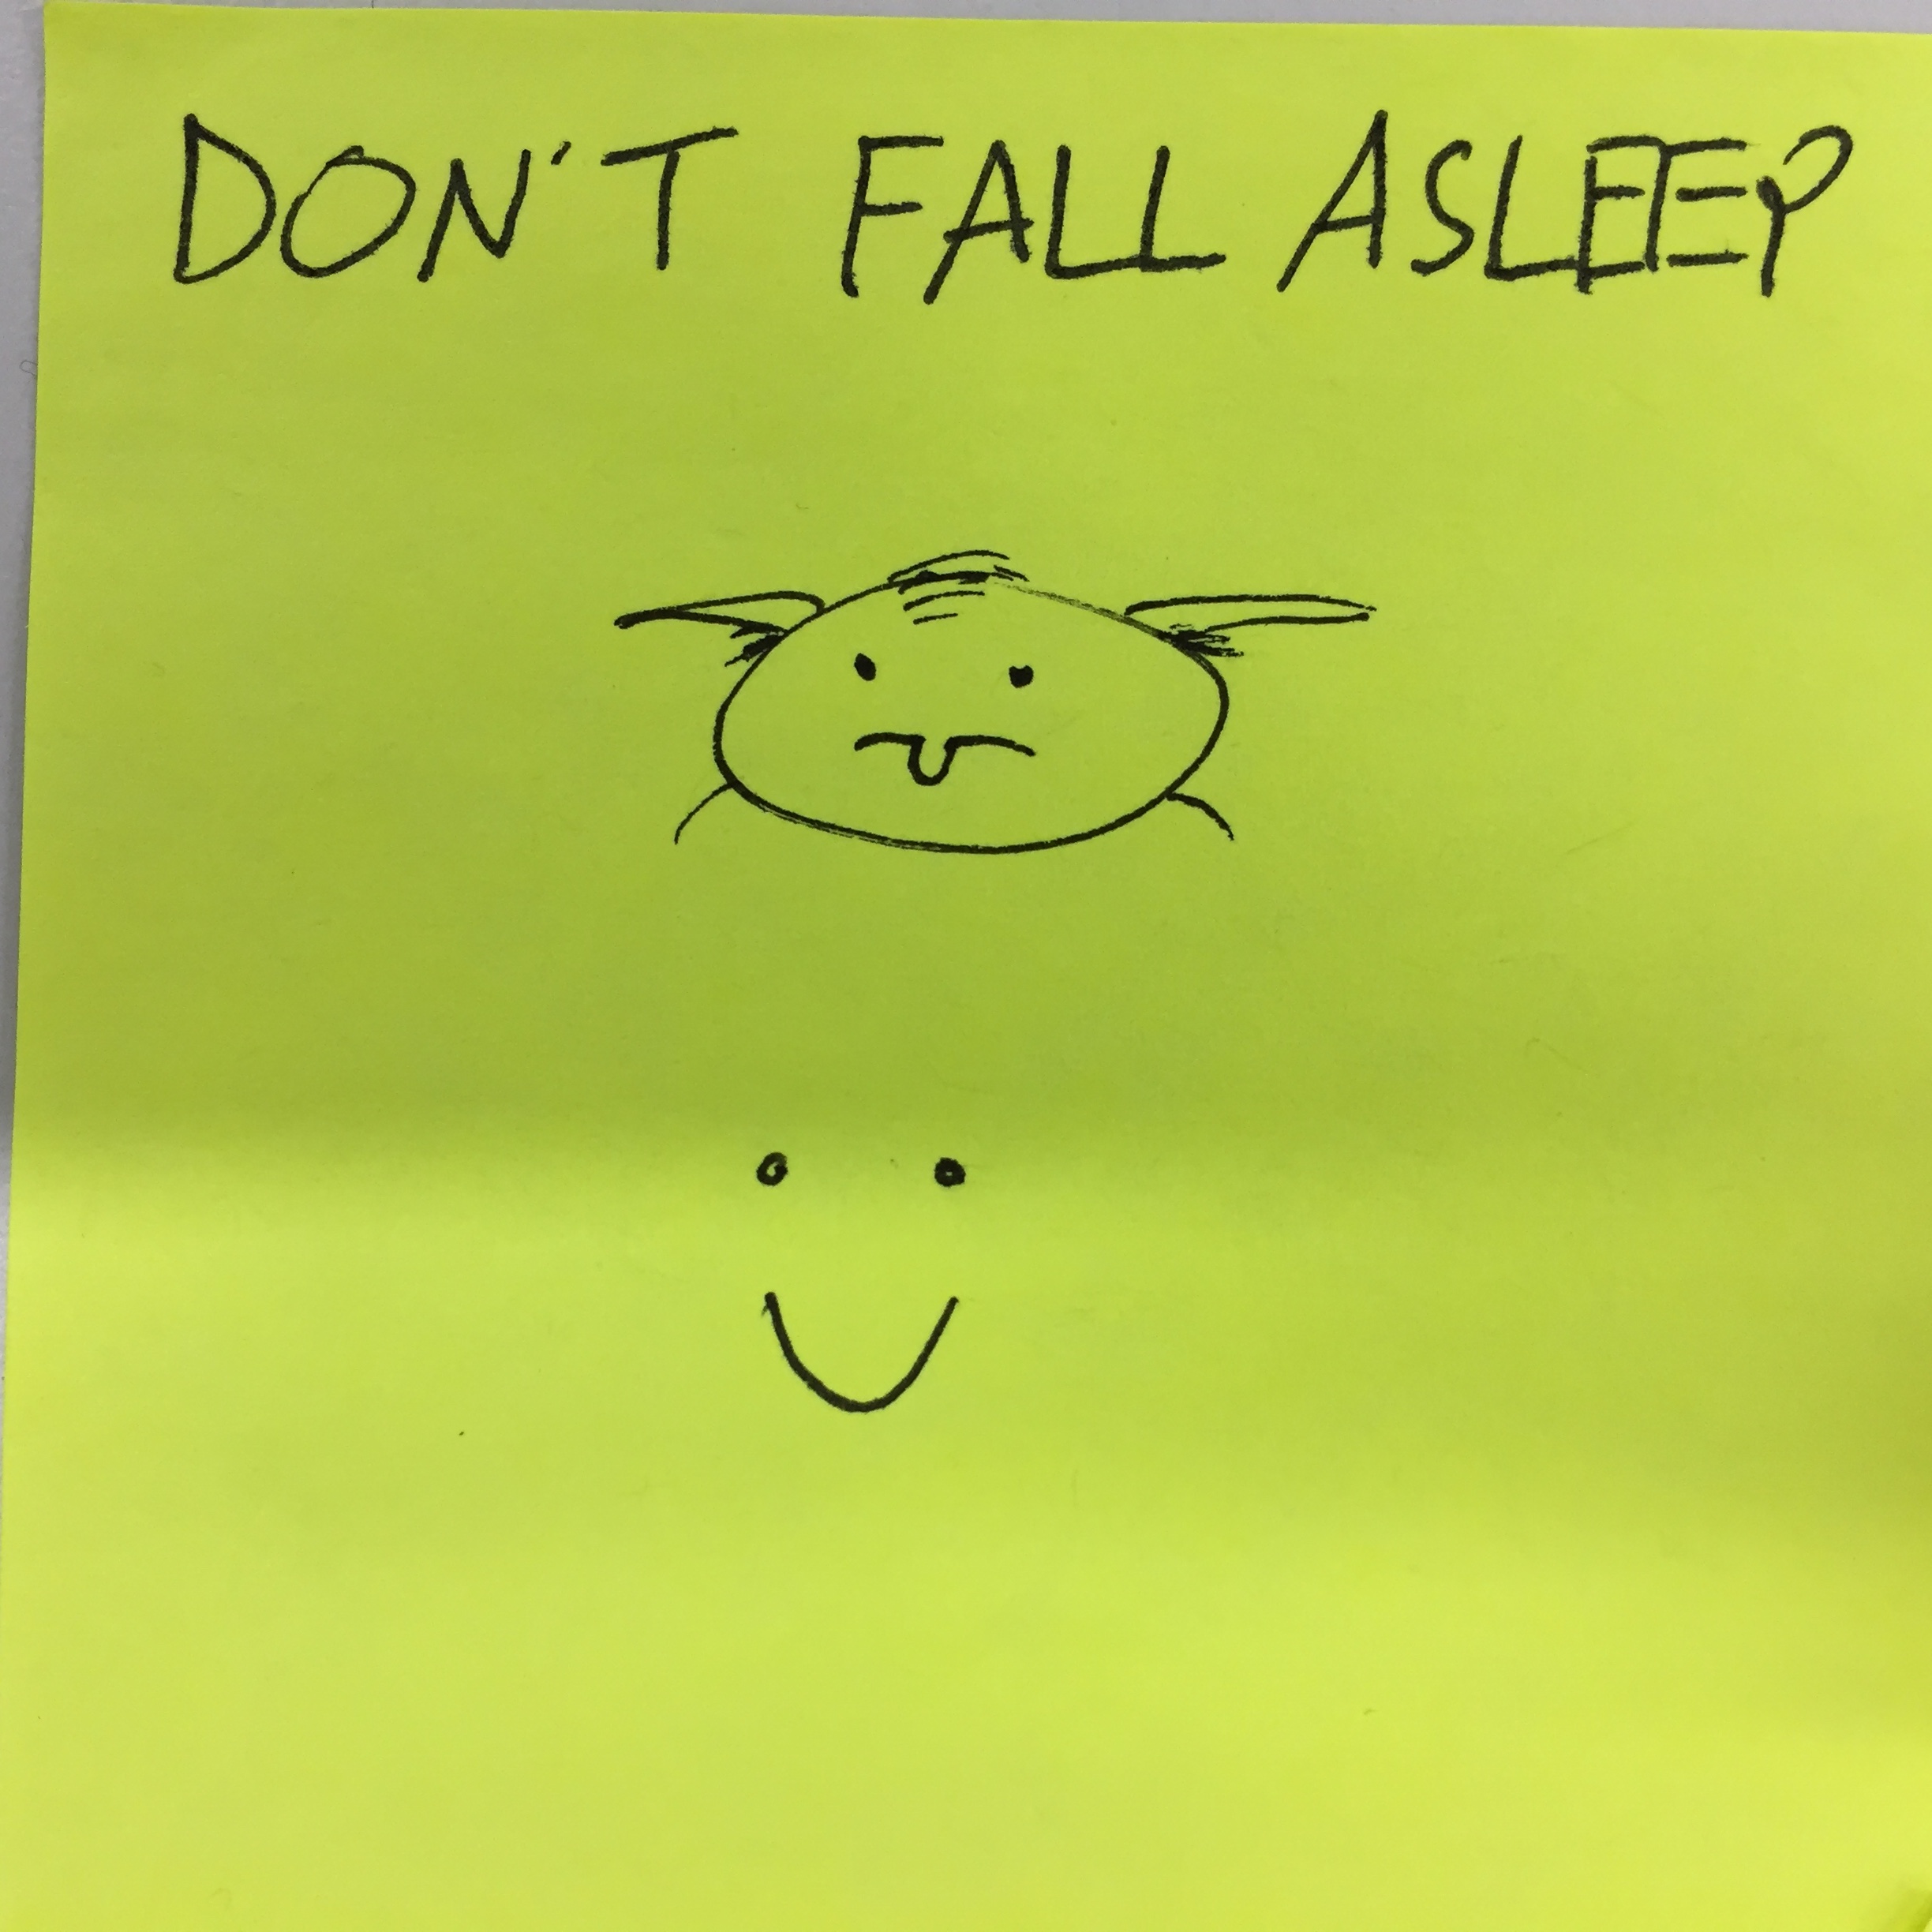 DON'T FALL ASLEEP